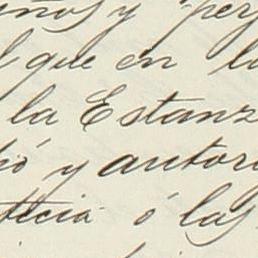 ños y per
que en la
la Estanz
ió y autor
ticia ó las